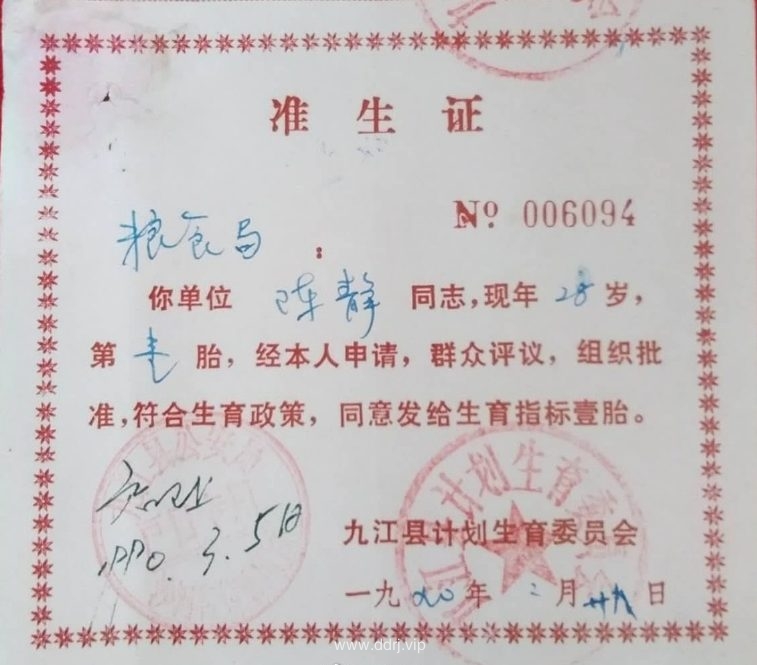 准生证
№ 006094
粮食局:
你单位 陈静 同志,现年 28 岁,
第 壹 胎,经本人申请,群众评议,组织批
准,符合生育政策,同意发给生育指标壹胎。
1990. 3. 5日
九江县计划生育委员会
一九九0年 二 月 廿八 日
县公安局
九江县计划生育委员会
www.ddrj.vip